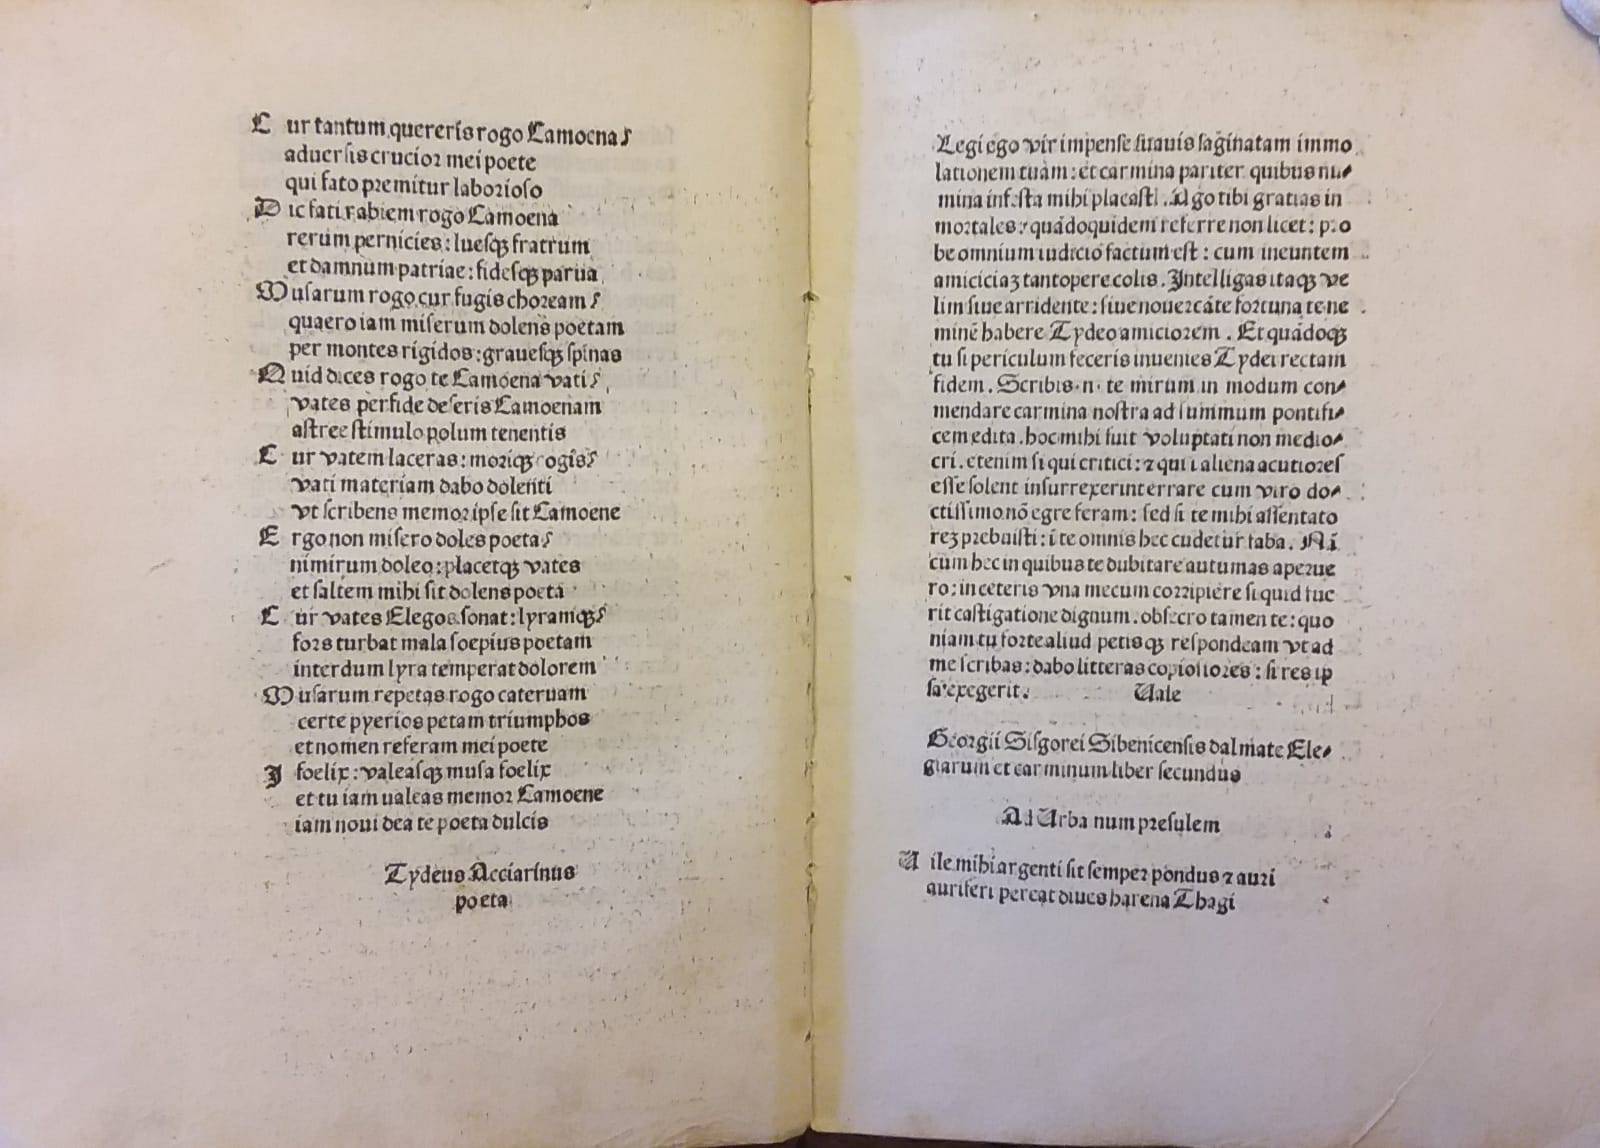 Cur tantum quereris rogo Camoena?
aduersis crucior mei poete
qui fato premitur laborioso
Dic fati rabiem rogo Camoena
rerum pernicies: luesqꝫ fratrum
et damnum patriae: fidesqꝫ parua
Musarum rogo cur fugis choream?
quaero iam miserum dolens poetam
per montes rigidos: grauesqꝫ spinas
Quid dices rogo te Camoena vati?
vates perfide deseris Camoenam
astree stimulo polum tenentis
Cur vatem laceras: moriqꝫ cogis?
vati materiam dabo dolenti
vt scribens memor ipse sit Camoene
Ergo non misero doles poeta?
nimirum doleo: placetqꝫ vates
et saltem mihi sit dolens poeta
Cur vates Elegos sonat: lyramqꝫ?
fors turbat mala soepius poetam
interdum lyra temperat dolorem
Musarum repetas rogo cateruam
certe pyerios petam triumphos
et nomen referam mei poete
I foelix: valeasqꝫ musa foelix
et tu iam ualeas memor Camoene
iam noui dea te poeta dulcis
Tydeus Acciarinus
poeta
Legi ego vir impense suauis saginatam immo
lationem tuam: et carmina pariter quibus nu⸗
mina infesta mihi placasti. Ago tibi gratias in
mortales: quādoquidem referre non licet: pro
be omnium iudicio factum est: cum ineuntem
amiciciaꝫ tantopere colis. Intelligas itaqꝫ ve
lim siue arridente: siue nouercāte fortuna te ne
minē habere Tydeo amiciorem. Et quādoqꝫ
tu si periculum feceris inuenies Tydei rectam
fidem. Scribis .n. te mirum in modum com⸗
mendare carmina nostra ad summum pontifi⸗
cem edita. hoc mihi fuit voluptati non medio⸗
cri. etenim si qui critici: ⁊ qui i aliena acutiores
esse solent insurrexerint errare cum viro do⸗
ctissimo nō egre feram: sed si te mihi assentato
reꝫ prebuisti: ī te omnis hec cudetur faba. Nā
cum hec in quibus te dubitare autumas aperue
ro: in ceteris vna mecum corripiere si quid fue
rit castigatione dignum. obsecro tamen te: quo
niam tu forte aliud petis qꝫ respondeam vt ad
me scribas: dabo litteras copiosiores: si res ip
sa exegerit. Uale
Georgii Sisgorei Sibenicensis dalmate Ele⸗
giarum et carminum liber secundus
Ad Urbanum presulem
Uile mihi argenti sit semper pondus ⁊ auri
auriferi pereat diues harena Thagi